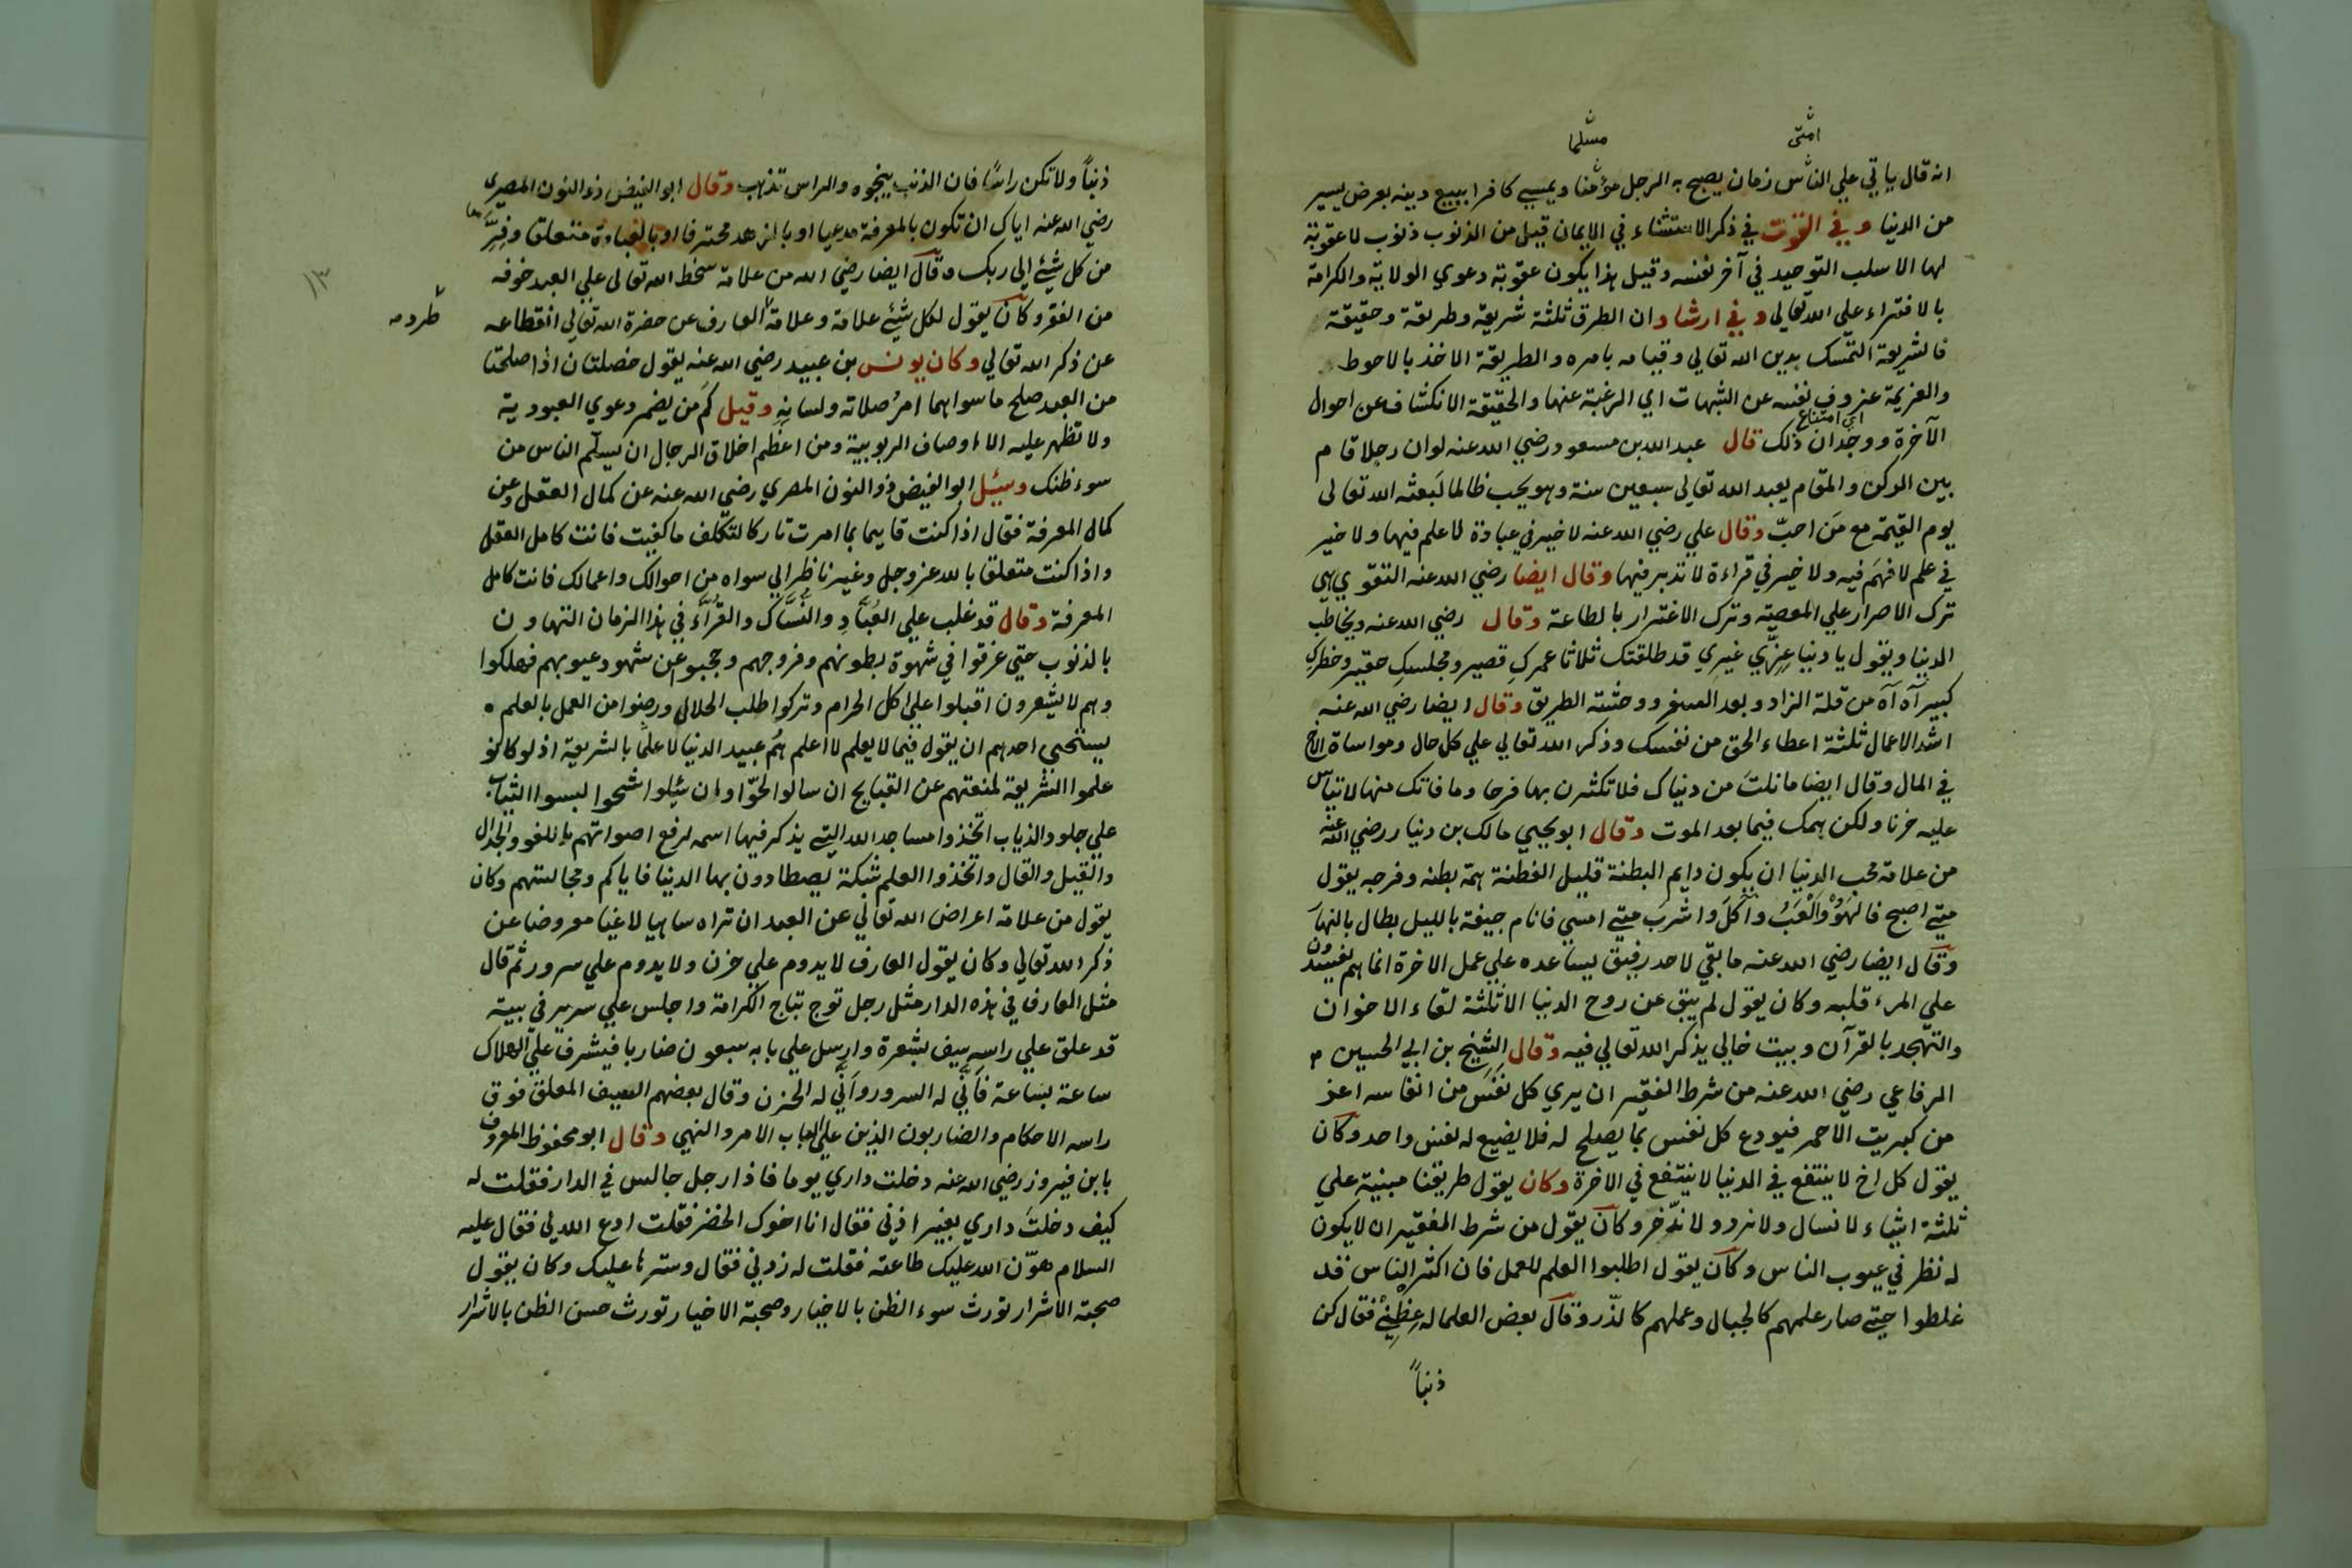 امتى
مسلما
انه قال ياتي علي الناس زمان يصبح به الرجل مؤمنا ويمسي كافرا يبيع دينه بعرض يسير
من الدنيا وفي القوت في ذكر الاستثناء في الايمان قيل من الذنوب ذنوب لا عقوبة
لها الا سلب التوحيد في آخر نفسه وقيل هذا يكون عقوبة دعوي الولاية والكرامة
بالافتراء علي الله تعالي وفي ارشاد ان الطرق ثلثة شريعة وطريقة وحقيقة
فالشريعة التمسك بدين الله تعالي وقيامه بامره والطريقة الاخذ بالاحوط
والعزيمة عزوف نفسه عن الشبهات اي الرغبة عنها والحقيقة الانكشاف عن احوال
اي امتناع
الآخرة ووجدان ذلك قال عبد الله بن مسعود رضي الله عنه لو ان رجلا قام
بين الركن والمقام يعبد الله تعالي سبعين سنة وهو يحب ظالما لبعثه الله تعالى
يوم القيمة مع من احب وقال علي رضي الله عنه لا خير في عبادة لا علم فيها ولا خير
في علم لا فهم فيه ولا خير في قراءة لا تدبر فيها وقال ايضا رضي الله عنه التقوي هي
ترك الاصرار علي المعصية وترك الاغترار بالطاعة وقال رضي الله عنه ويخاطب
الدنيا ويقول يا دنيا غري غيري قد طلقتك ثلاثا عمرك قصير ومجلسك حقير وخطرك
كبير آه آه من قلة الزاد وبعد السفر ووحشة الطريق وقال ايضا رضي الله عنه
اشد الاعمال ثلثة اعطاء الحق من نفسك وذكر الله تعالي علي كل حال ومواساة الاخ
في المال وقال ايضا ما نلت من دنياك فلا تكثرن بها فرحا وما فاتك منها لا تياس
عليه حزنا ولكن همك فيما بعد الموت وقال ابو يحيي مالك بن دينار رضي الله عنه
من علامة محب الدنيا ان يكون دايم البطنة قليل الفطنة همة بطنه وفرجه يقول
متي اصبح فالهو والعب وآكل واشرب متي امسي فانام جيفة بالليل بطال بالنهار
وقال ايضا رضي الله عنه ما بقي لاحد رفيق يساعده علي عمل الاخرة انما هم يفسدون
علي المرء قلبه وكان يقول لم يبق عن روح الدنيا الا ثلثة لقاء الاخوان
والتهجد بالقرآن وبيت خالي يذكر الله تعالي فيه وقال الشيخ بن ابي الحسين
الرفاعي رضي الله عنه من شرط الفقير ان يري كل نفس من انفاسه اعز
من كبريت الاحمر فيودع كل نفس بما يصلح له فلا يضيع له نفس واحد وكان
يقول كل اخ لا ينتفع في الدنيا لا ينتفع في الاخرة وكان يقول طريقنا مبنية علي
ثلثة اشياء لا نسال ولا نرد ولا ندخر وكان يقول من شرط الفقير ان لا يكون
له نظر في عيوب الناس وكان يقول اطلبوا العلم للعمل فان اكثر الناس قد
غلطوا حتي صار علمهم كالجبال وعملهم كالذر وقال بعض العلما له عظني فقال كن
ذنبا
ذنبا ولا تكن راسا فان الذنب ينجوه والراس تذهب وقال ابو الفيض ذو النون المصري
رضي الله عنه اياك ان تكون بالمعرفة مدعيا او بالزهد محترفا او بالعبادة متعلقا وفر
من كل شئ الي ربك وقال ايضا رضي الله من علامة سخط الله تعالى علي العبد خوفه
من الفقر وكان يقول لكل شئ علامة وعلامة العارف عن حضرة الله تعالي انقطاعه
طرد
١٣
عن ذكر الله تعالي وكان يونس بن عبيد رضي الله عنه يقول خصلتان اذا صلحتا
من العبد صلح ما سواهما امر صلاته ولسانه وقيل كم من يضمر دعوي العبودية
ولا تظهر عليه الا اوصاف الربوبية ومن اعظم اخلاق الرجال ان يسلم الناس من
سوء ظنك وسئل ابو الفيض ذو النون المصري رضي الله عنه عن كمال العقل وعن
كمال المعرفة فقال اذا كنت قايما بما امرت تاركا لتكلف ما كفيت فانت كامل العقل
واذا كنت متعلقا بالله عز وجل وغير ناظر الي سواه من احوالك واعمالك فانت كامل
المعرفة وقال قد غلب علي العباد والنساك والقراء في هذا الزمان التهاون
بالذنوب حتي غرقوا في شهوة بطونهم وفروجهم وحجبوا عن شهود عيوبهم فهلكوا
وهم لا يشعرون اقبلوا علي اكل الحرام وتركوا طلب الحلال ورضوا من العمل بالعلم
يستحيي احدهم ان يقول فيما لا يعلم لا اعلم هم عبيد الدنيا لا علما بالشريعة اذ لو كانو
علموا الشريعة لمنعتهم عن القبايح ان سالوا الحوا وان سئلوا اشحوا لبسوا الثياب
علي جلود الذياب اتخذوا مساجد الله التي يذكر فيها اسمه لرفع اصواتهم باللغو والجدال
والقيل والقال واتخذوا العلم شبكة يصطادون بها الدنيا فاياكم ومجالستهم وكان
يقول من علامة اعراض الله تعالي عن العبد ان تراه ساهيا لاغيا معرضا عن
ذكر الله تعالي وكان يقول العارف لا يدوم علي حزن ولا يدوم علي سرور ثم قال
مثل العارف في هذه الدار مثل رجل توج بتاج الكرامة واجلس علي سرير في بيته
قد علق علي راسه سيف بشعرة وارسل علي بابه سبعون ضاربا فيشرف علي الهلاك
ساعة بساعة فاني له السرور واني له الحزن وقال بعضهم السيف المعلق فوق
راسه الاحكام والضاربون الذين علي الباب الامر والنهي وقال ابو محفوظ المعروف
بابن فيروز رضي الله عنه دخلت داري يوما فاذا رجل جالس في الدار فقلت له
كيف دخلت داري بغير اذني فقال انا اخوك الخضر فقلت ادع الله لي فقال عليه
السلام هون الله عليك طاعته فقلت له زدني فقال وسترها عليك وكان يقول
صحبة الاشرار تورث سوء الظن بالاخيار وصحبة الاخيار تورث حسن الظن بالاشرار